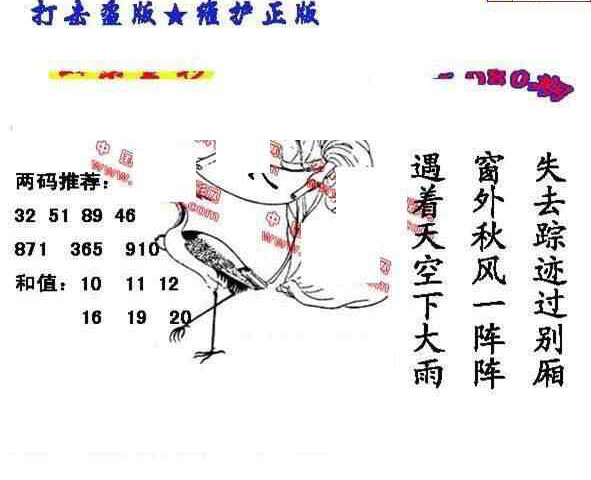 打击盗版★维护正版
两码推荐：
32 51 89 46
871 365 910
和值：10 11 12
16 19 20
失去踪迹过别厢
窗外秋风一阵阵
遇着天空下大雨